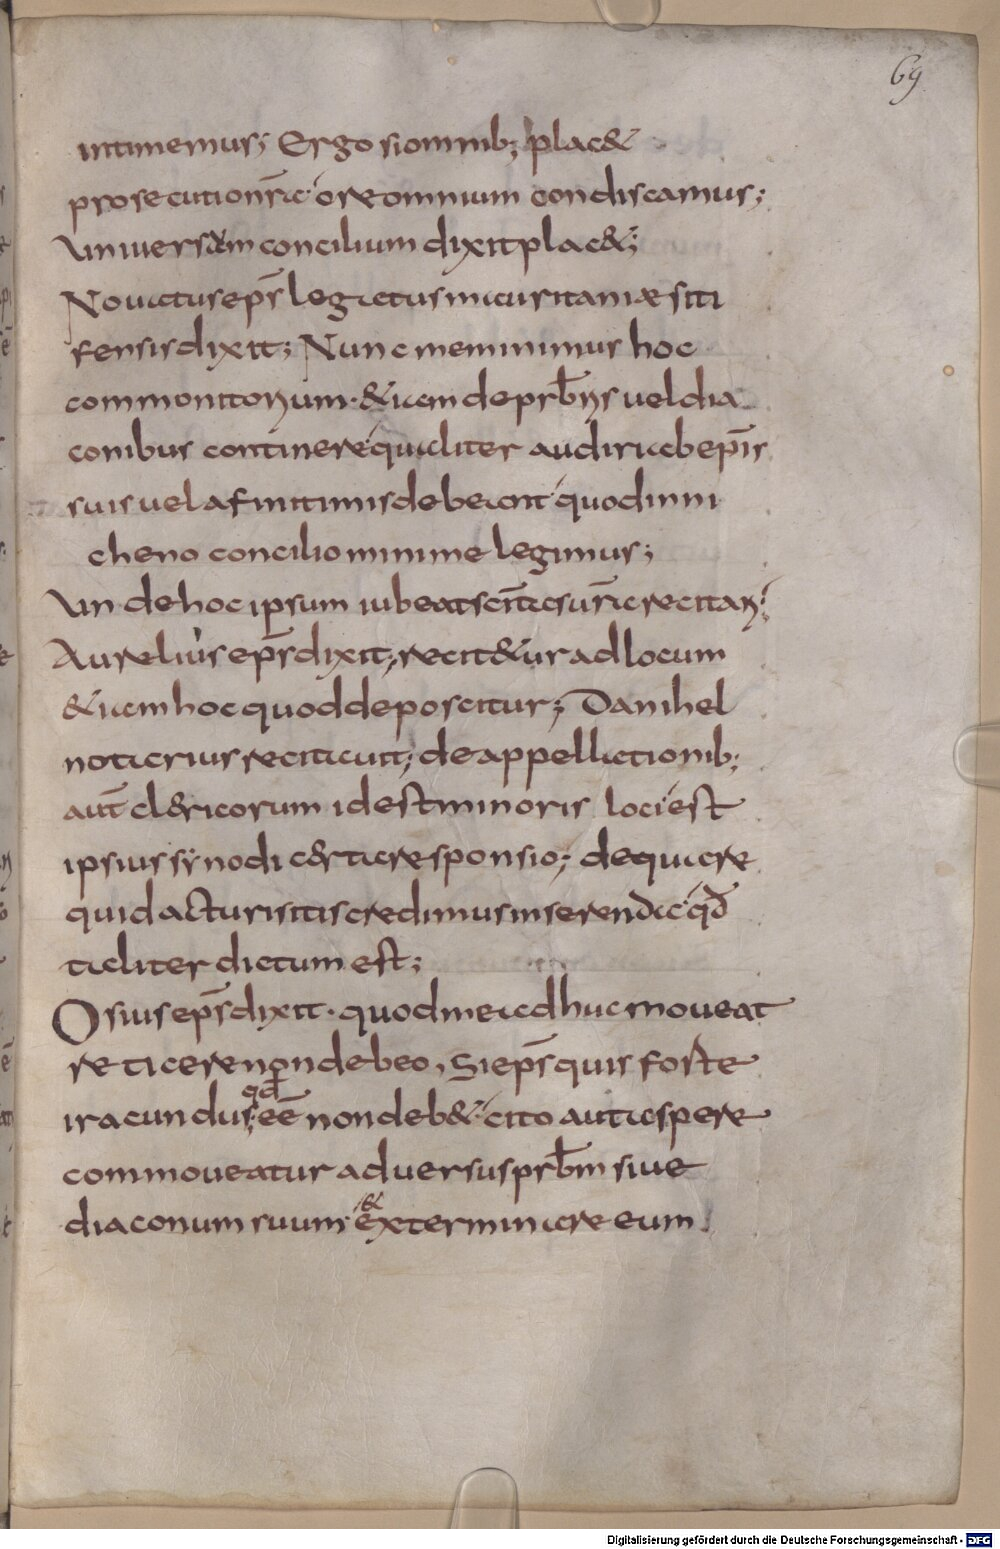 69
intimemus; Ergo si omnib; plac&
prosecutionsr̄a ore omnium condiscamus;
Universum concilium dixit plac&;
Novatus ep̄s legatus mauritaniæ siti
fensis dixit; Nunc meminimus hoc
commonitorium · &iam de prb̄iis vel dia
conibus continere qualiter audiri ab ep̄is
suis vel a finitimis debeant quod inni
cheno concilio minime legimus;
Unde hoc ipsum iubeat sc̄itas ur̄a recitari
Aurelius ep̄s dixit; recit&ur ad locum
&iam hoc quod deposcitur; Danihel
notarius recitavit; de appellationib;
aūt clericorum id est minoris loci est
ipsius synodi certa responsio; de qua re
quid acturi sitis credimus inserenda qd̄
taliter dictum est;
Osius ep̄s dixit · quod me adhuc moveat
reticere non debeo, Si ep̄s quis forte
qd̄
iracundus; eē non deb& cito aut aspere
commoveatur adversus prb̄m sive
&
diaconum suum exterminare eum
Digitalisierung gefördert durch die Deutsche Forschungsgemeinschaft - DFG